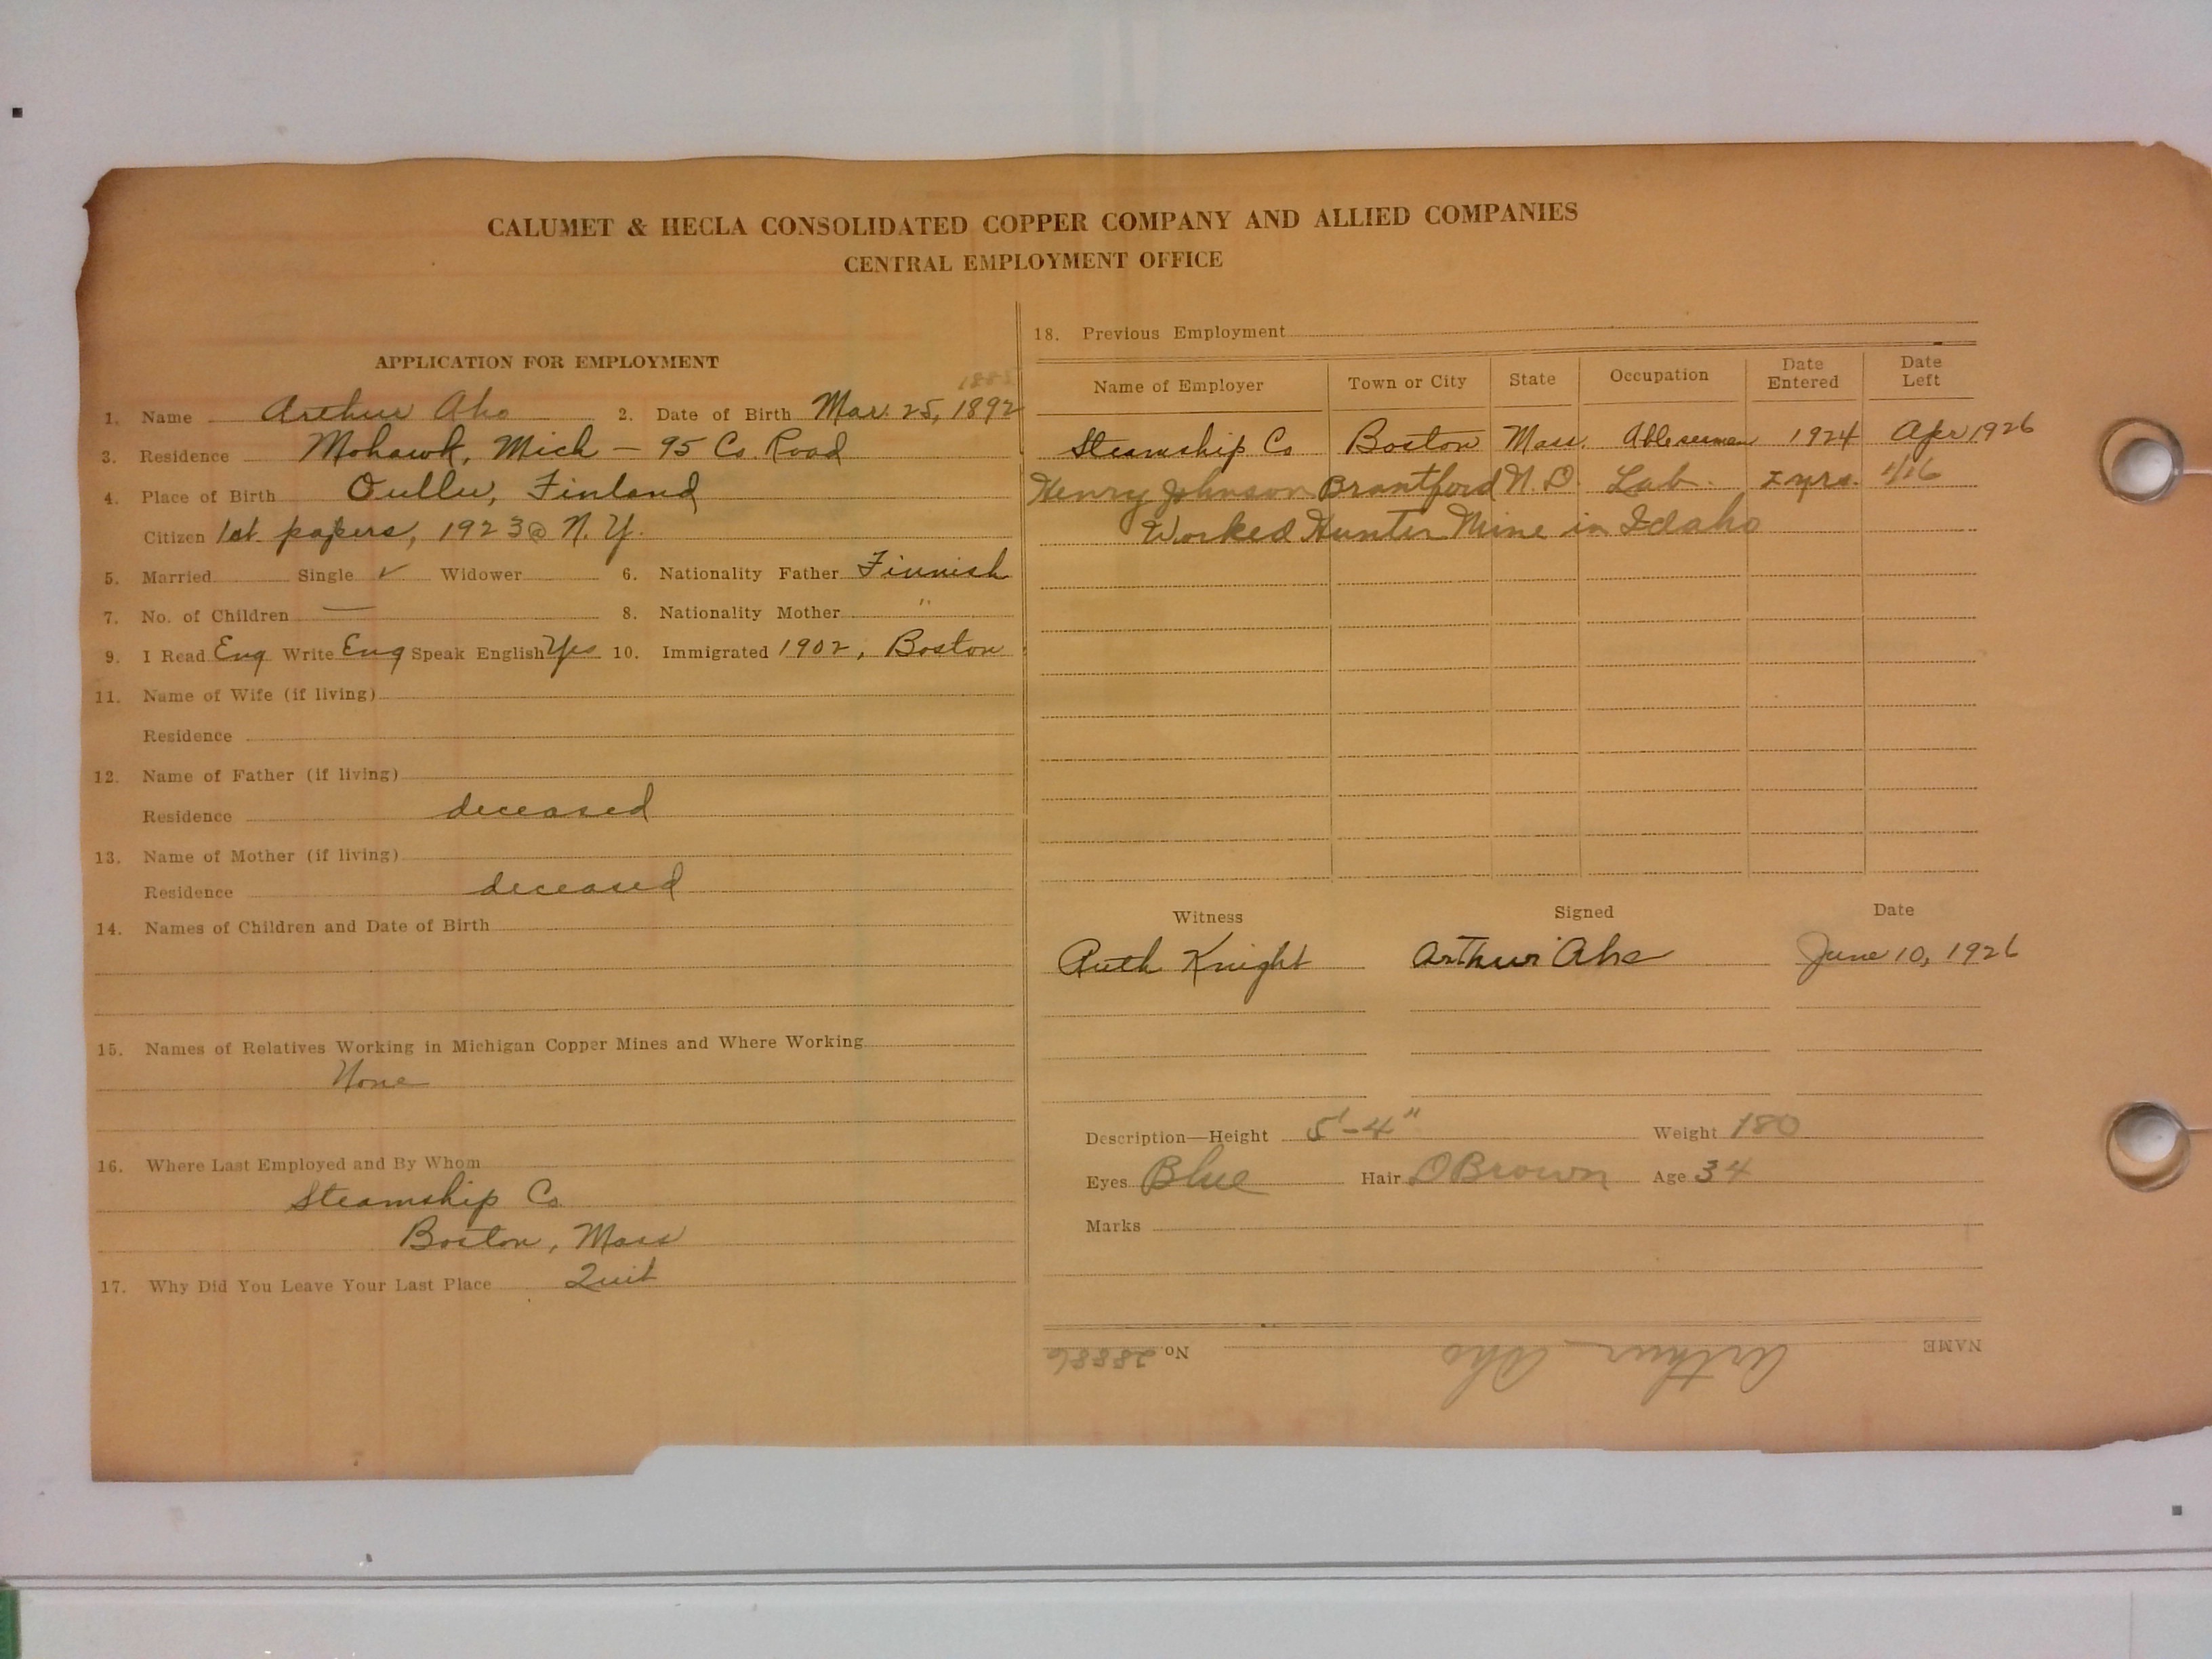 CALUMET & HECLA CONSOLIDATED COPPER COMPANY AND ALLIED COMPANIES
CENTRAL EMPLOYMENT OFFICE
APPLICATION FOR EMPLOYMENT
1885
1. Name Arthur Aho 2. Date of Birth Mar. 25, 1892
3. Residence Mohawk, Mich — 95 Co. Road
4. Place of Birth Oullu, Finland
Citizen 1st papers, 1923 @ N. Y.
5. Married Single ✓ Widower 6. Nationality Father Finnish
7. No. of Children — 8. Nationality Mother "
9. I Read Eng Write Eng Speak English Yes 10. Immigrated 1902, Boston
11. Name of Wife (if living)
Residence
12. Name of Father (if living)
Residence deceased
13. Name of Mother (if living)
Residence deceased
14. Names of Children and Date of Birth
15. Names of Relatives Working in Michigan Copper Mines and Where Working
None
16. Where Last Employed and By Whom
Steamship Co.
Boston, Mass
17. Why Did You Leave Your Last Place Quit
18. Previous Employment
Name of Employer Town or City State Occupation Date Entered Date Left
Steamship Co Boston Mass. Able seaman 1924 Apr 1926
Henry Johnson Brantford N. D. Lab. 2 yrs.
Worked Hunter Mine in Idaho
Witness Signed Date
Ruth Knight Arthur Aho June 10, 1926
Description—Height 5'-4" Weight 180
Eyes Blue Hair D Brown Age 34
Marks
NAME Arthur Aho No. 28886